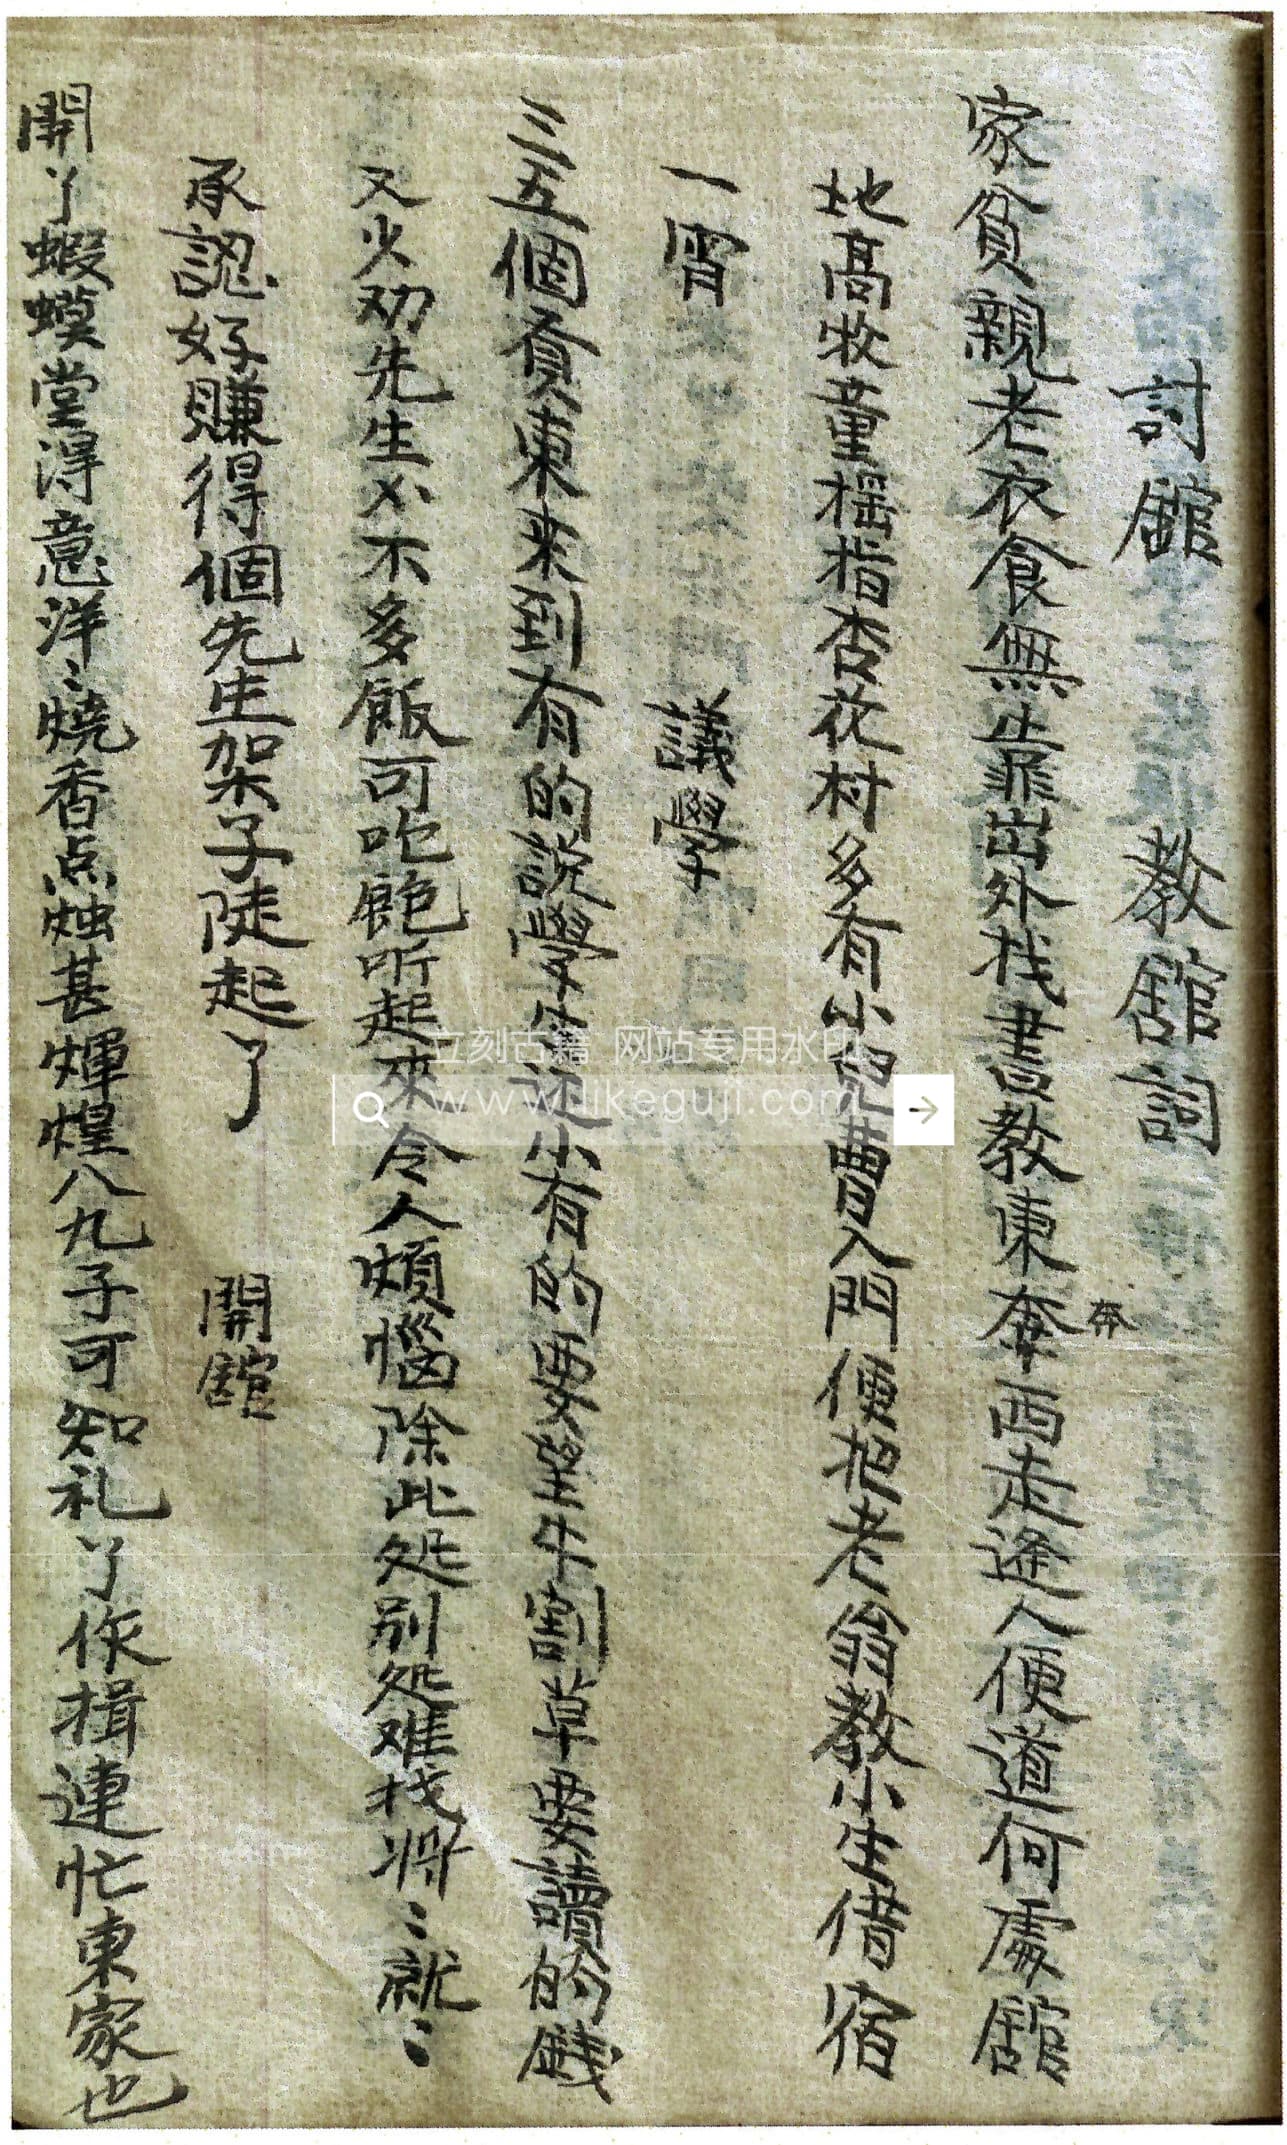 討舘 教舘詞
家貧親老衣食無靠出外找書教東奔西走逢人便道何處舘
奔
地高牧童搖指杏花村多有小兒曹入門便把老翁教小生借宿
一宵 議學
三五個貢東来到有的説學生還小有的要望牛割草要讀的錢
又少劝先生少不多飯可吃飽听起來令人煩惱除此処别処难找将〻就〻
承認好賺得個先生架子陡起了 開舘
開了蝦蟆堂得意洋〻燒香点烛甚煇煌八九子可知礼了作揖連忙東家也
立刻古籍 网站专用水印
www.likeguji.com